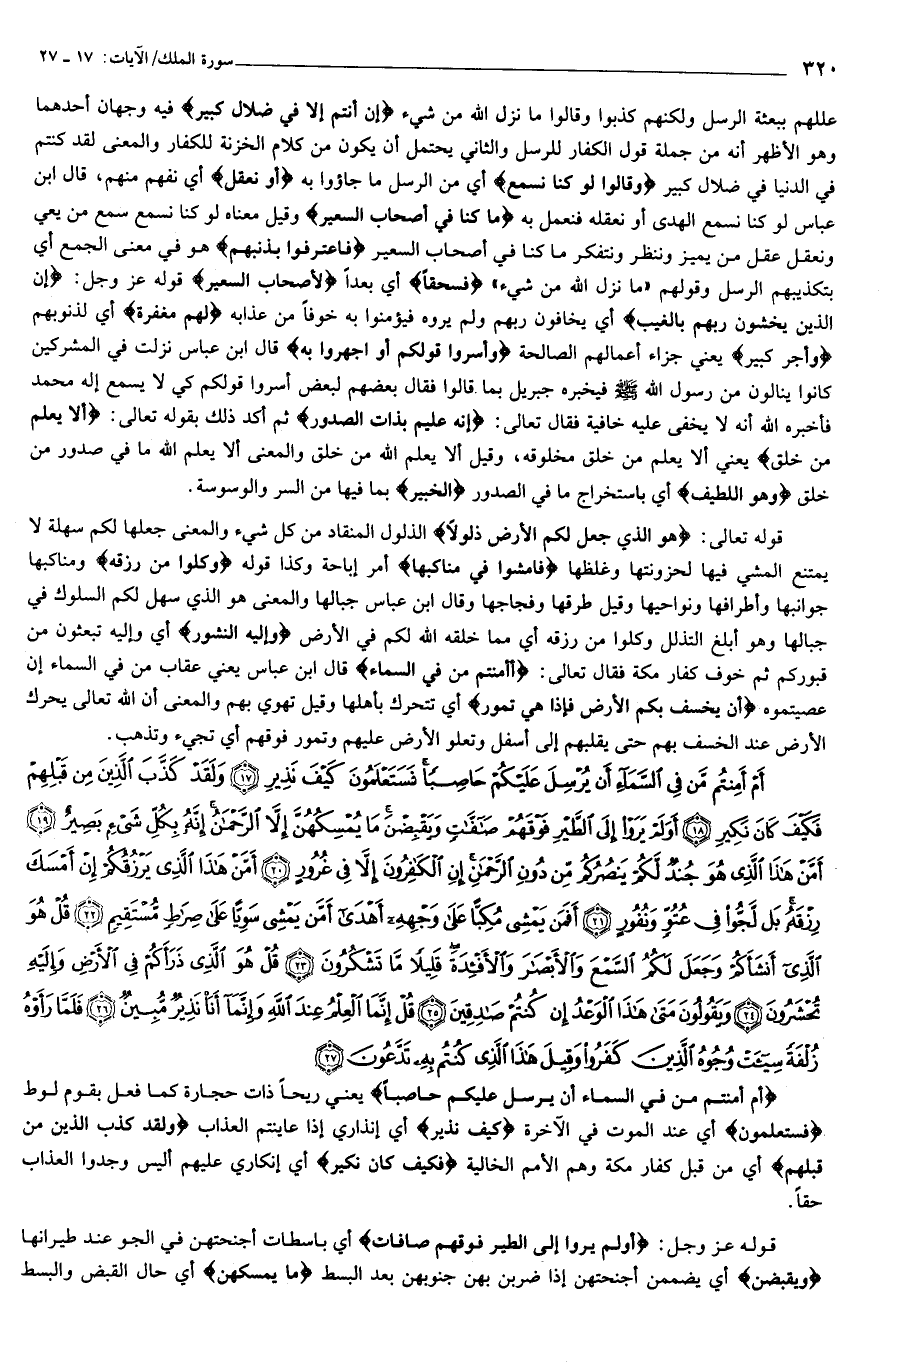 ٣٢٠ سورة الملك/ الآيات: ١٧ ـ ٢٧
عللهم ببعثة الرسل ولكنهم كذبوا وقالوا ما نزل الله من شيء ﴿إن أنتم إلا في ضلال كبير﴾ فيه وجهان أحدهما
وهو الأظهر أنه من جملة قول الكفار للرسل والثاني يحتمل أن يكون من كلام الخزنة للكفار والمعنى لقد كنتم
في الدنيا في ضلال كبير ﴿وقالوا لو كنا نسمع﴾ أي من الرسل ما جاؤوا به ﴿أو نعقل﴾ أي نفهم منهم، قال ابن
عباس لو كنا نسمع الهدى أو نعقله فنعمل به ﴿ما كنا في أصحاب السعير﴾ وقيل معناه لو كنا نسمع سمع من يعي
ونعقل عقل من يميز وننظر ونتفكر ما كنا في أصحاب السعير ﴿فاعترفوا بذنبهم﴾ هو في معنى الجمع أي
بتكذيبهم الرسل وقولهم «ما نزل الله من شيء» ﴿فسحقاً﴾ أي بعداً ﴿لأصحاب السعير﴾ قوله عز وجل: ﴿إن
الذين يخشون ربهم بالغيب﴾ أي يخافون ربهم ولم يروه فيؤمنوا به خوفاً من عذابه ﴿لهم مغفرة﴾ أي لذنوبهم
﴿وأجر كبير﴾ يعني جزاء أعمالهم الصالحة ﴿وأسروا قولكم أو اجهروا به﴾ قال ابن عباس نزلت في المشركين
كانوا ينالون من رسول الله ﷺ فيخبره جبريل بما قالوا فقال بعضهم لبعض أسروا قولكم كي لا يسمع إله محمد
فأخبره الله أنه لا يخفى عليه خافية فقال تعالى: ﴿إنه عليم بذات الصدور﴾ ثم أكد ذلك بقوله تعالى: ﴿ألا يعلم
من خلق﴾ يعني ألا يعلم من خلق مخلوقه، وقيل ألا يعلم الله من خلق والمعنى ألا يعلم الله ما في صدور من
خلق ﴿وهو اللطيف﴾ أي باستخراج ما في الصدور ﴿الخبير﴾ بما فيها من السر والوسوسة.
قوله تعالى: ﴿هو الذي جعل لكم الأرض ذلولاً﴾ الذلول المنقاد من كل شيء والمعنى جعلها لكم سهلة لا
يمتنع المشي فيها لحزونتها وغلظها ﴿فامشوا في مناكبها﴾ أمر إباحة وكذا قوله ﴿وكلوا من رزقه﴾ ومناكبها
جوانبها وأطرافها ونواحيها وقيل طرقها وفجاجها وقال ابن عباس جبالها والمعنى هو الذي سهل لكم السلوك في
جبالها وهو أبلغ التذلل وكلوا من رزقه أي مما خلقه الله لكم في الأرض ﴿وإليه النشور﴾ أي وإليه تبعثون من
قبوركم ثم خوف كفار مكة فقال تعالى: ﴿أأمنتم من في السماء﴾ قال ابن عباس يعني عقاب من في السماء إن
عصيتموه ﴿أن يخسف بكم الأرض فإذا هي تمور﴾ أي تتحرك بأهلها وقيل تهوي بهم والمعنى أن الله تعالى يحرك
الأرض عند الخسف بهم حتى يقلبهم إلى أسفل وتعلو الأرض عليهم وتمور فوقهم أي تجيء وتذهب.
أَمْ أَمِنتُم مَّن فِي السَّمَآءِ أَن يُرْسِلَ عَلَيْكُمْ حَاصِبًا ۖ فَسَتَعْلَمُونَ كَيْفَ نَذِيرِ ﴿١٧﴾ وَلَقَدْ كَذَّبَ الَّذِينَ مِن قَبْلِهِمْ
فَكَيْفَ كَانَ نَكِيرِ ﴿١٨﴾ أَوَلَمْ يَرَوْا إِلَى الطَّيْرِ فَوْقَهُمْ صَٰٓفَّٰتٍ وَيَقْبِضْنَ ۚ مَا يُمْسِكُهُنَّ إِلَّا الرَّحْمَٰنُ ۚ إِنَّهُ بِكُلِّ شَيْءٍ بَصِيرٌ ﴿١٩﴾
أَمَّنْ هَٰذَا الَّذِي هُوَ جُندٌ لَّكُمْ يَنصُرُكُم مِّن دُونِ الرَّحْمَٰنِ ۚ إِنِ الْكَٰفِرُونَ إِلَّا فِي غُرُورٍ ﴿٢٠﴾ أَمَّنْ هَٰذَا الَّذِي يَرْزُقُكُمْ إِنْ أَمْسَكَ
رِزْقَهُ ۚ بَل لَّجُّوا فِي عُتُوٍّ وَنُفُورٍ ﴿٢١﴾ أَفَمَن يَمْشِي مُكِبًّا عَلَىٰ وَجْهِهِ أَهْدَىٰٓ أَمَّن يَمْشِي سَوِيًّا عَلَىٰ صِرَٰطٍ مُّسْتَقِيمٍ ﴿٢٢﴾ قُلْ هُوَ
الَّذِيٓ أَنشَأَكُمْ وَجَعَلَ لَكُمُ السَّمْعَ وَالْأَبْصَٰرَ وَالْأَفْـِٔدَةَ ۖ قَلِيلًا مَّا تَشْكُرُونَ ﴿٢٣﴾ قُلْ هُوَ الَّذِي ذَرَأَكُمْ فِي الْأَرْضِ وَإِلَيْهِ
تُحْشَرُونَ ﴿٢٤﴾ وَيَقُولُونَ مَتَىٰ هَٰذَا الْوَعْدُ إِن كُنتُمْ صَٰدِقِينَ ﴿٢٥﴾ قُلْ إِنَّمَا الْعِلْمُ عِندَ اللَّهِ وَإِنَّمَآ أَنَا۠ نَذِيرٌ مُّبِينٌ ﴿٢٦﴾ فَلَمَّا رَأَوْهُ
زُلْفَةً سِيٓـَٔتْ وُجُوهُ الَّذِينَ كَفَرُوا وَقِيلَ هَٰذَا الَّذِي كُنتُم بِهِ تَدَّعُونَ ﴿٢٧﴾
﴿أم أمنتم من في السماء أن يرسل عليكم حاصباً﴾ يعني ريحاً ذات حجارة كما فعل بقوم لوط
﴿فستعلمون﴾ أي عند الموت في الآخرة ﴿كيف نذير﴾ أي إنذاري إذا عاينتم العذاب ﴿ولقد كذب الذين من
قبلهم﴾ أي من قبل كفار مكة وهم الأمم الخالية ﴿فكيف كان نكير﴾ أي إنكاري عليهم أليس وجدوا العذاب
حقاً.
قوله عز وجل: ﴿أولم يروا إلى الطير فوقهم صافات﴾ أي باسطات أجنحتهن في الجو عند طيرانها
﴿ويقبضن﴾ أي يضممن أجنحتهن إذا ضربن بهن جنوبهن بعد البسط ﴿ما يمسكهن﴾ أي حال القبض والبسط